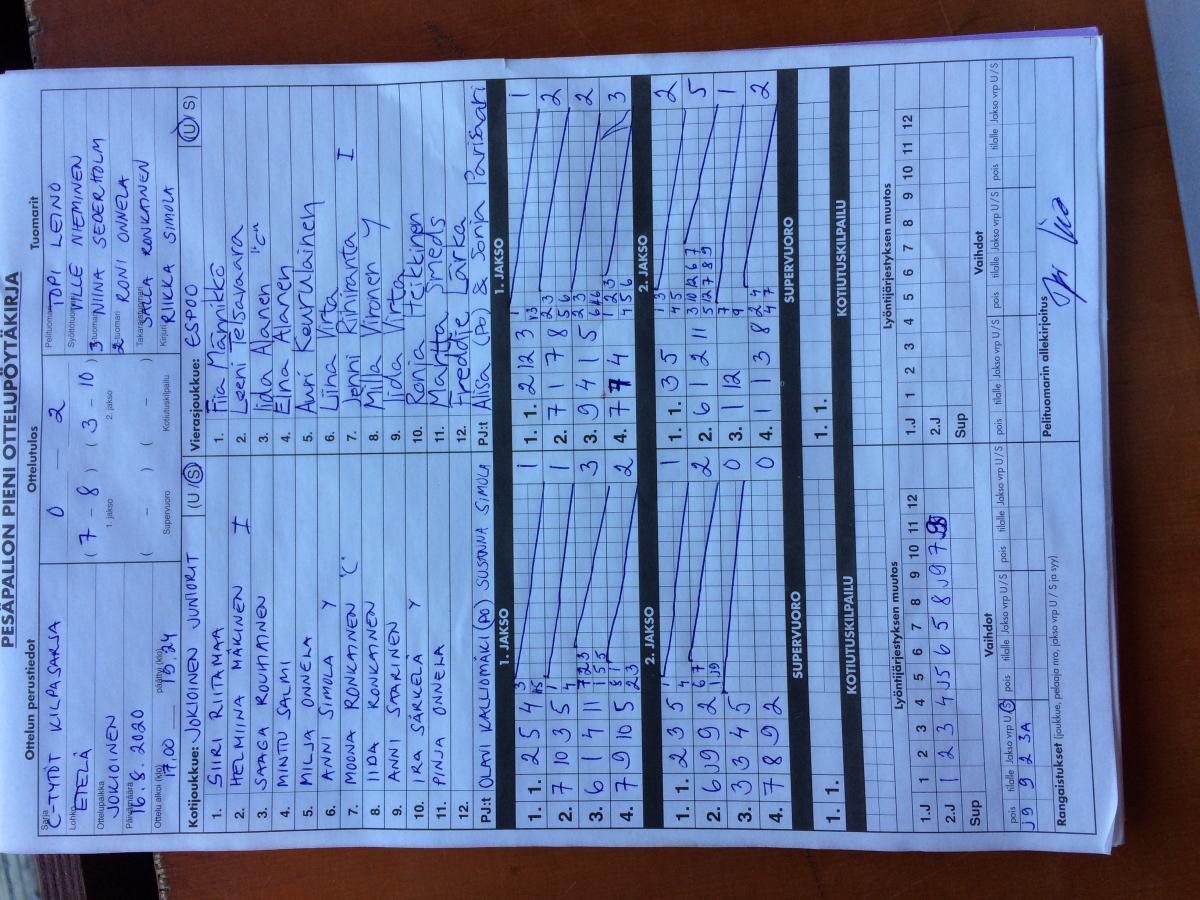 PESÄPALLON PIENI OTTELUPÖYTÄKIRJA
Ottelun perustiedot
Ottelutulos
Tuomarit
Sarja C-TYTÖT KILPASARJA
Lohko ETELÄ
Ottelupaikka JOKIOINEN
Päivämäärä 16.8.2020
Ottelu alkoi (klo) 17.00 päättyi (klo) 19.24
0 — 2
( 7 - 8 ) ( 3 - 10 )
1. jakso 2. jakso
( - ) ( - )
Supervuoro Kotiutuskilpailu
Pelituomari TOPI LEINO
Syöttötuomari VILLE NIEMINEN
3-tuomari NIINA SEDERHOLM
2-tuomari RONI ONNELA
Takarajatuomari SALLA RONKAINEN
Kirjuri RIIKKA SIMOLA
Kotijoukkue: JOKIOINEN JUNIORIT (U / S)
1. SIIRI RIITAMAA
2. HELMIINA MÄKINEN I
3. SAAGA ROUHIAINEN
4. MINTTU SALMI
5. MILJA ONNELA
6. ANNI SIMOLA Y
7. MOONA RONKAINEN "C"
8. IIDA RONKAINEN
9. ANNI STARINEN
10. IRA SÄRKELÄ Y
11. PINJA ONNELA
12.
PJ:t OLAVI KALLIOMÄKI (PO) SUSANNA SIMOLA
Vierasjoukkue: ESPOO (U / S)
1. Fiia Männikkö
2. Leeni Telsavaara
3. Iida Alanen "C"
4. Eina Alanen
5. Auri Keurulainen
6. Liina Virta
7. Jenni Riihiranta I
8. Milla Vironen Y
9. Iida Virta
10. Ronja Heikkinen
11. Martta Smeds
12. Freddie Lärka
PJ:t Alisa (PO) & Sonja Parissari
1. JAKSO 1. JAKSO
1. 1. 2 5 4 3 1 5 1
2. 7 10 3 5 1 4 1
3. 6 1 4 11 7 2 3 1 5 5 3
4. 7 9 10 5 8 1 2 3 2
1. 1. 2 12 3 1 13 1
2. 7 1 7 8 2 3 5 6 2
3. 9 4 1 5 2 3 6 2
4. 7 7 4 1 2 3 4 5 6 3
2. JAKSO 2. JAKSO
1. 1. 2 3 5 1 4 1
2. 6 J9 9 2 6 7 1 J9 2
3. 3 4 5 0
4. 7 8 9 2 0
1. 1. 3 5 1 3 4 5 2
2. 6 1 2 11 3 10 12 6 7 5 12 7 8 9 5
3. 1 12 7 9 1
4. 1 1 3 8 2 4 4 7 2
SUPERVUORO SUPERVUORO
1. 1. 1. 1.
KOTIUTUSKILPAILU KOTIUTUSKILPAILU
Lyöntijärjestyksen muutos Lyöntijärjestyksen muutos
1.J 1 2 3 4 5 6 7 8 9 10 11 12
2.J 1 2 3 4 J5 6 5 8 J9 7
Sup
1.J 1 2 3 4 5 6 7 8 9 10 11 12
2.J
Sup
Vaihdot Vaihdot
pois tilalle Jakso vrp U/S pois tilalle Jakso vrp U/S pois tilalle Jakso vrp U/S
J9 9 2 3A
pois tilalle Jakso vrp U/S pois tilalle Jakso vrp U/S pois tilalle Jakso vrp U/S
Rangaistukset (joukkue, pelaaja nro, jakso vrp U / S ja syy)
Pelituomarin allekirjoitus